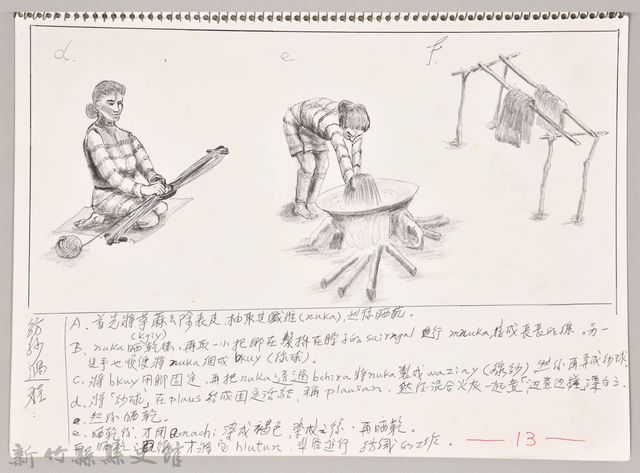 d.
e.
f.
紡紗過程：
A. 首先將苧麻去除表皮，抽取其纖維(nuka)，然後晒乾。
(kgiy)
B. nuka晒乾後，再取一小把綁在 掛在脖子的sairagal進行mnuka，捻成長長的線。另一
隻手也慢慢將nuka繞成bkuy(線球)。
C. 將bkuy用腳固定，再把nuka透過bchira將nuka製成waziny(線紗)，然後再弄成紗球
d. 將「紗球」在plaus 結成固定活結，稱plausan，然後混合火灰一起煮，邊煮邊攪漂白之。
e. 然後晒乾。
e. 晒乾後，才用 machi染成褐色，染成之後，再晒乾。
晒乾之後，才將它hlutun，準備進行紡織的工作。
—13—
新竹縣縣史館